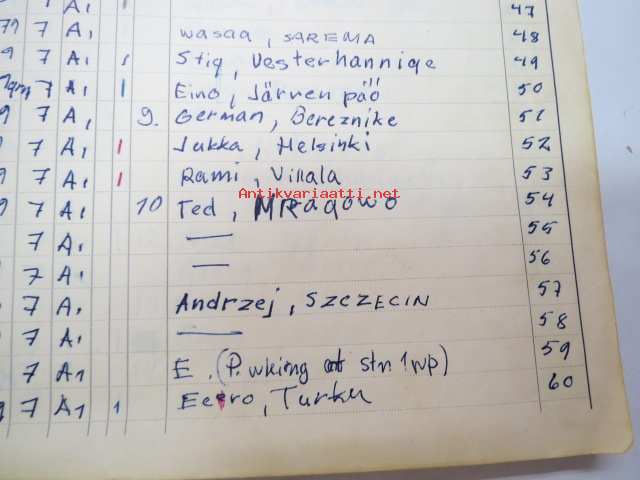 47
79 7 A1 wasaa, SAREMA 48
9 7 A1 s Stig, Vesterhannige 49
7 A1 1 Eino, Järvenpää 50
9 7 A1 9. German, Bereznike 51
9 7 A1 1 Jukka, Helsinki 52
9 7 A1 1 Rami, Villala 53
Antikvariaatti.net
9 7 A1 10 Ted, MRągowo 54
7 A1 — 55
7 A1 — 56
7 A1 Andrzej, SZCZECIN 57
7 A1 — 58
7 A1 E. (P. wking at stn 1wp) 59
9 7 A1 1 Eero, Turku 60